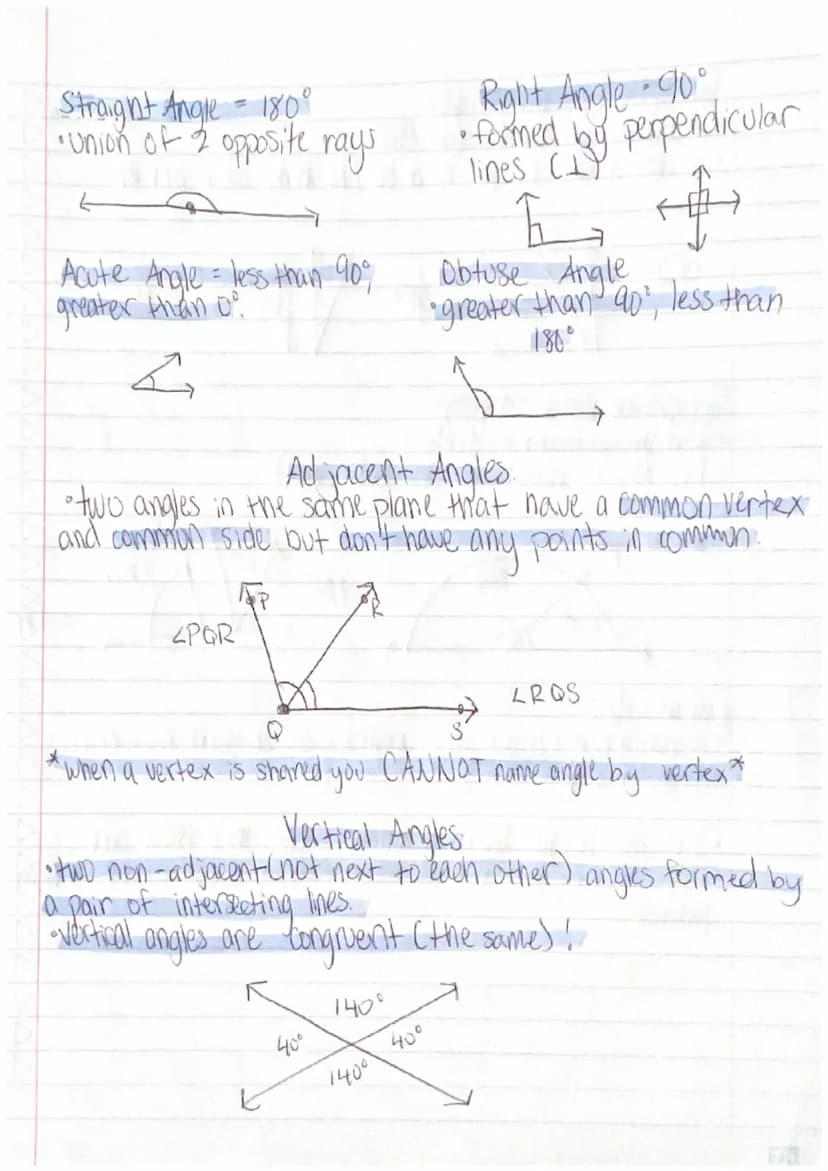 Straight Angle = 180°
• union of 2 opposite rays
Right Angle • 90°
• formed by perpendicular
lines (⊥)
Acute Angle = less than 90°,
greater than 0°.
Obtuse Angle
• greater than 90°, less than
180°
Adjacent Angles.
• two angles in the same plane that have a common vertex
and common side, but don't have any points in common.
P
R
∠PQR
∠RQS
Q
S
*when a vertex is shared you CANNOT name angle by vertex*
Vertical Angles
• two non-adjacent (not next to each other) angles formed by
a pair of intersecting lines.
• vertical angles are congruent (the same)!
140°
40°
40°
140°